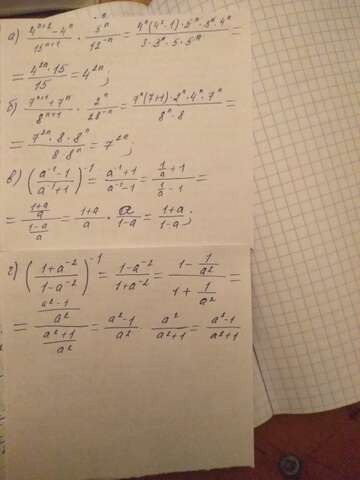 а) (4^(n+2) - 4^n)/15^(n+1) · 5^n/12^(-n) = (4^n(4^2-1)·5^n·3^n·4^n)/(3·3^n·5·5^n) =
= (4^(2n)·15)/15 = 4^(2n);
б) (7^(n+1)+7^n)/8^(n+1) · 2^n/28^(-n) = (7^n(7+1)·2^n·4^n·7^n)/(8^n·8) =
= (7^(2n)·8·8^n)/(8·8^n) = 7^(2n);
в) ((a^(-1)-1)/(a^(-1)+1))^(-1) = (a^(-1)+1)/(a^(-1)-1) = (1/a + 1)/(1/a - 1) =
= ((1+a)/a)/((1-a)/a) = (1+a)/a · a/(1-a) = (1+a)/(1-a);
г) ((1+a^(-2))/(1-a^(-2)))^(-1) = (1-a^(-2))/(1+a^(-2)) = (1 - 1/a^2)/(1 + 1/a^2) =
= ((a^2-1)/a^2)/((a^2+1)/a^2) = (a^2-1)/a^2 · a^2/(a^2+1) = (a^2-1)/(a^2+1)